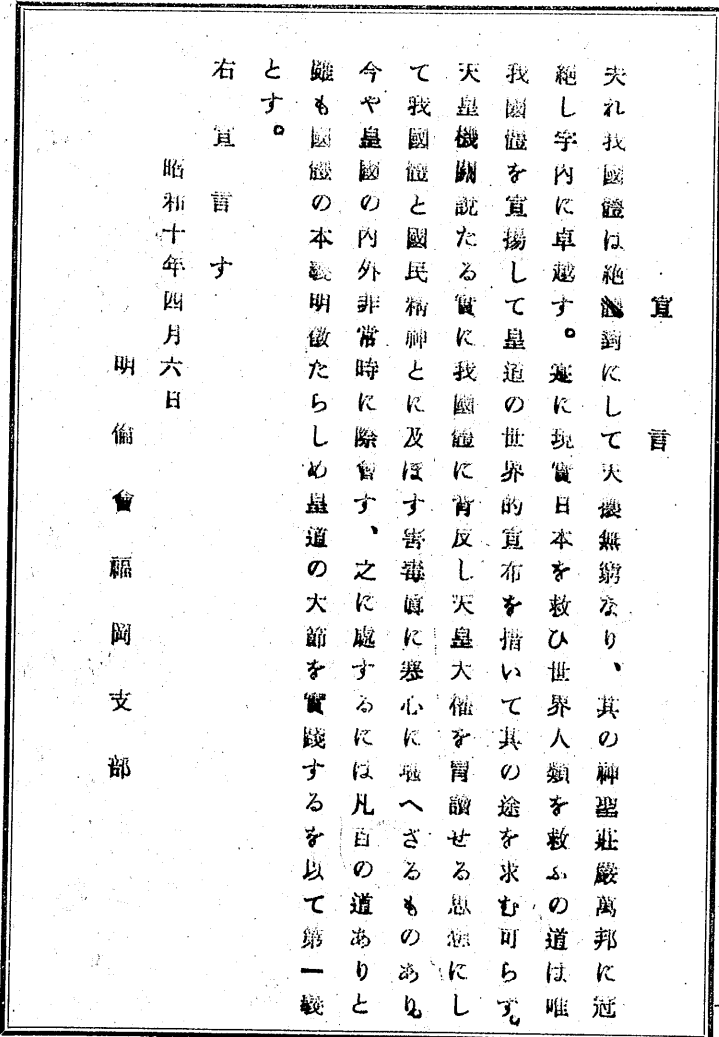 宣言
夫れ我國體は絶對にして天壤無窮なり、其の神聖莊嚴萬邦に冠
絶し宇內に卓越す。寔に現實日本を救ひ世界人類を救ふの道は唯
我國體を宣揚して皇道の世界的宣布を措いて其の途を求む可らず。
天皇機關說たる實に我國體に背反し天皇大權を冒瀆せる思想にし
て我國體と國民精神とに及ぼす害毒眞に寒心に堪へざるものあり。
今や皇國の內外非常時に際會す、之に處するには凡百の道ありと
雖も國體の本義明徵たらしめ皇道の大節を實踐するを以て第一義
とす。
右宣言す
昭和十年四月六日
明倫會福岡支部